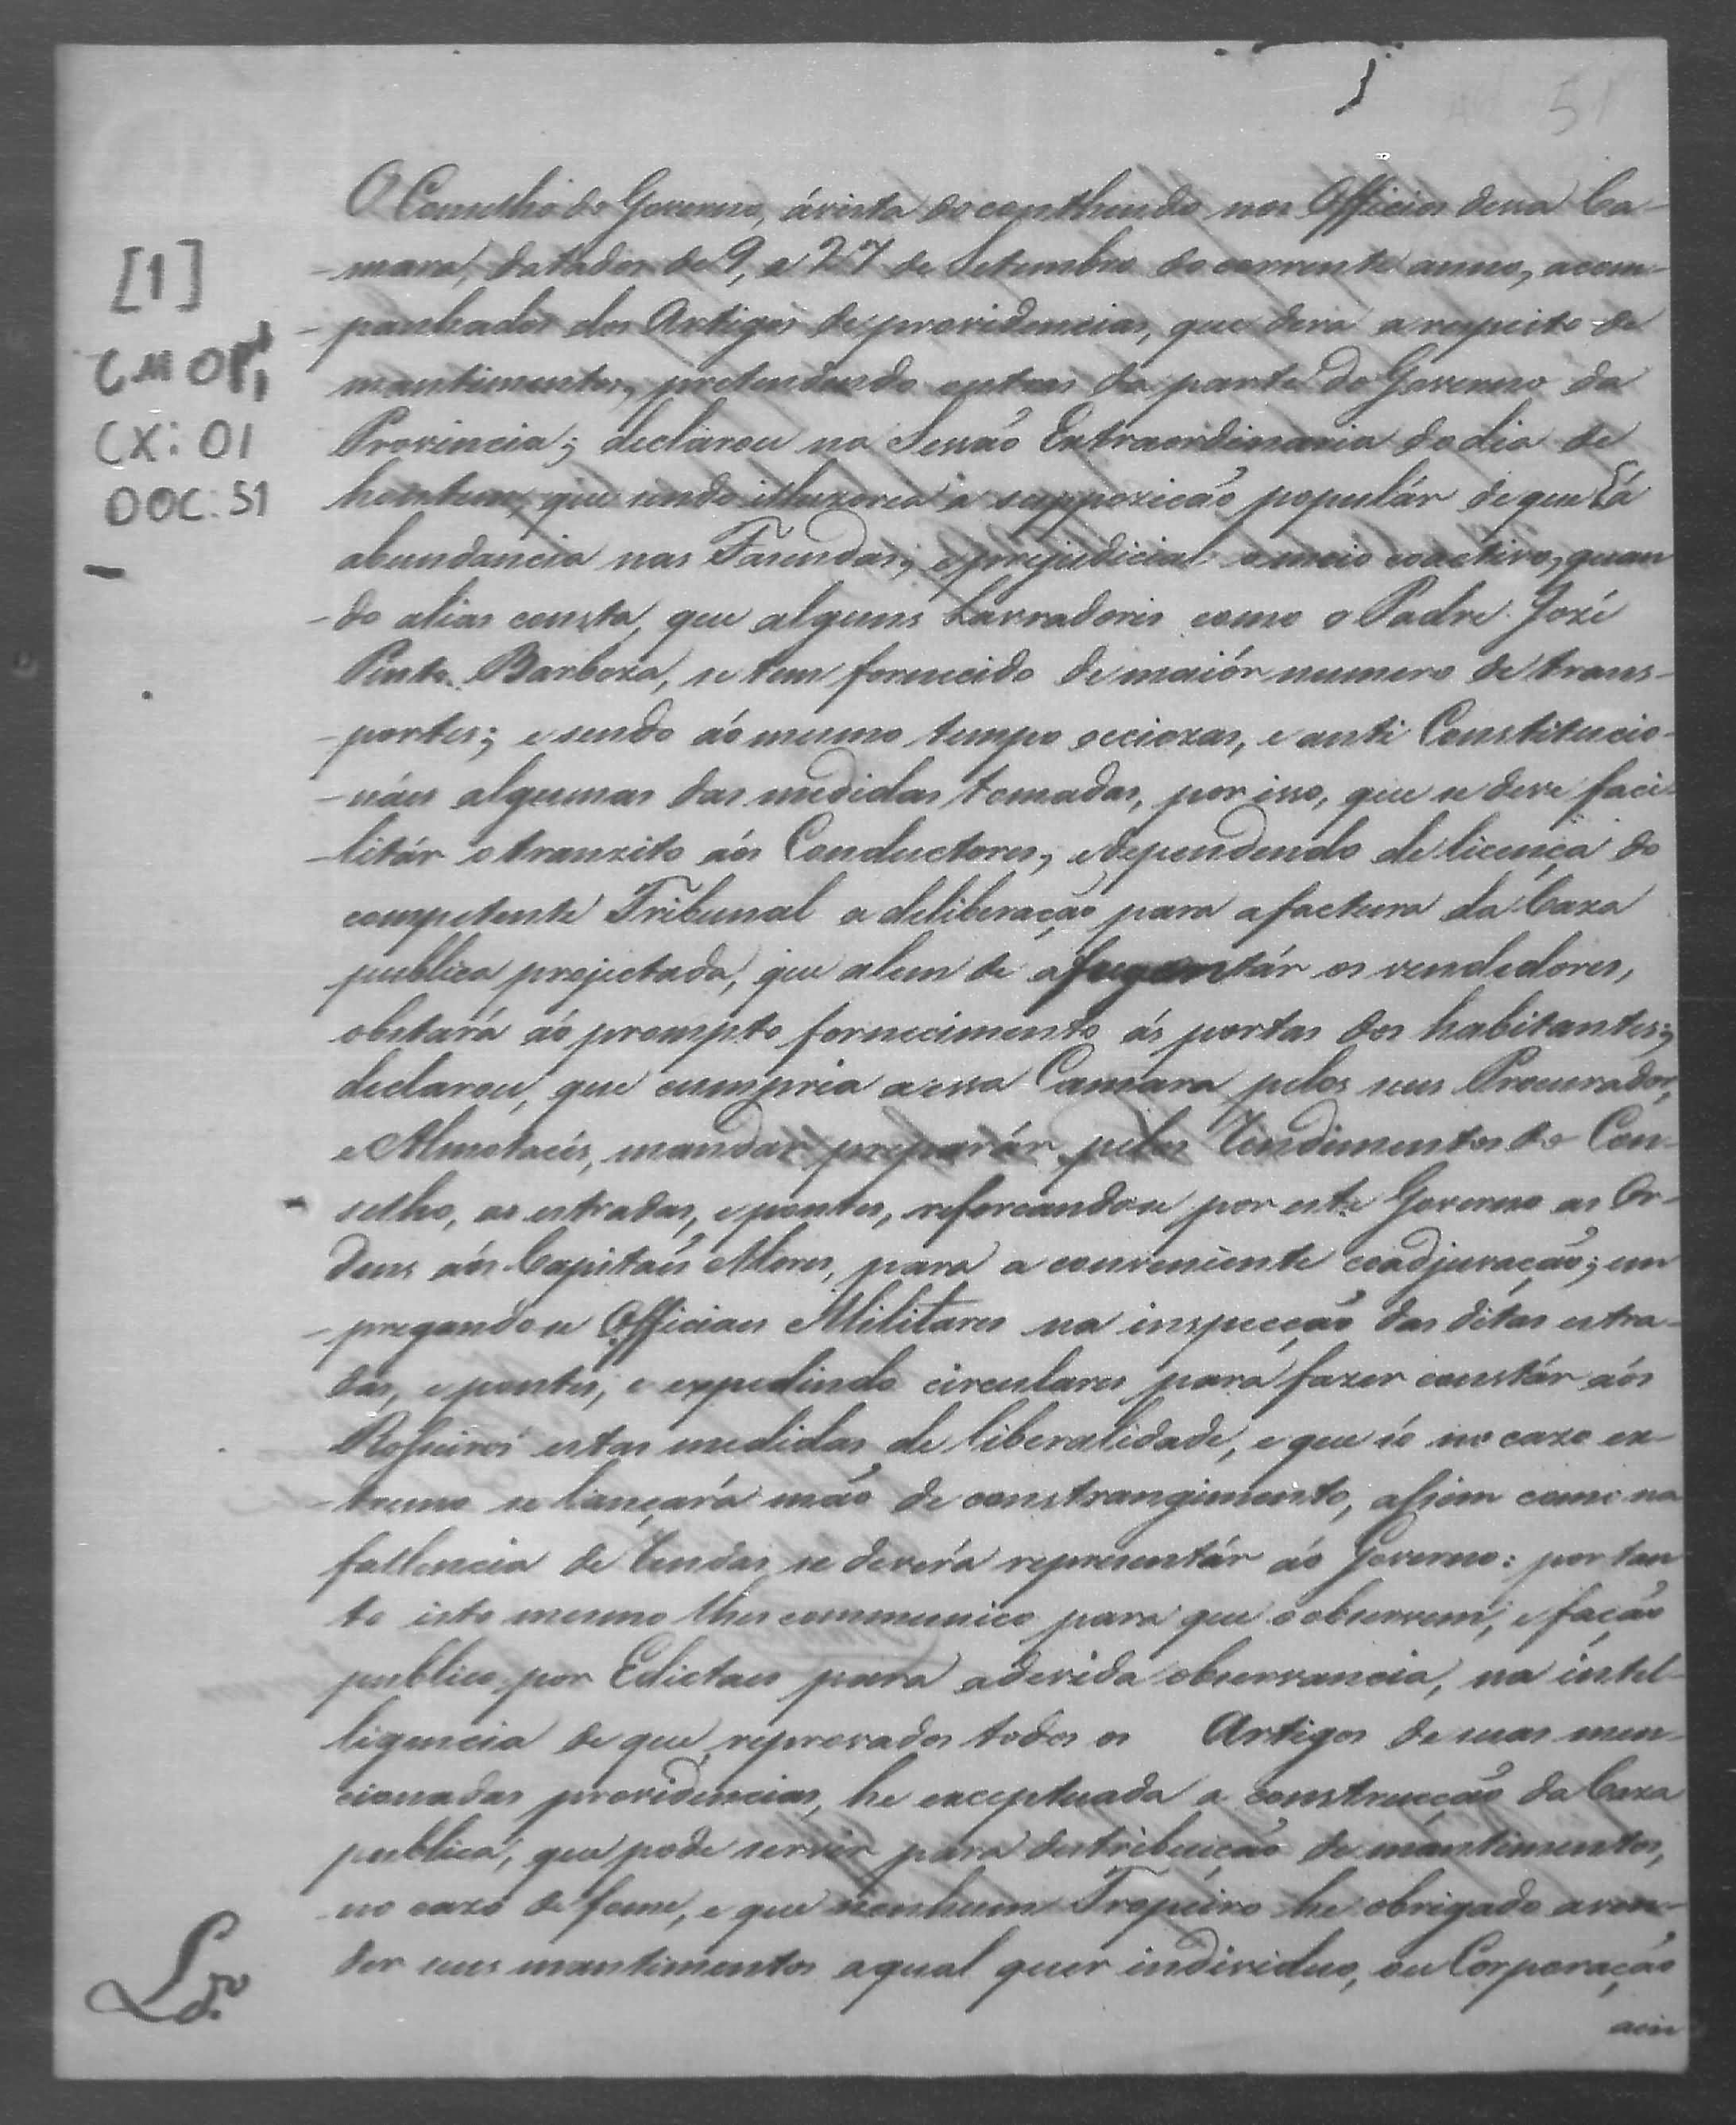 51
O Conselho do Governo, ávista do conthiudo nos Officios dessa Ca-
-mara, datados de 9, e 27 de Setembro do corrente anno, acom-
-panhados dos Artigos de providencias, que dera a respeito de
mantimentos, pretendendo outras da parte do Governo da
Provincia; declarou na Sessaõ Extraordinaria do dia de
hontem, que sendo illuzoria a suppoziçaõ populár de que há
abundancia nas Fasendas; e prejudicial o meio coactivo, quan
-do alias consta, que alguns Lavradores como o Padre José
Pinto Barboza, se tem fornecido de maiór numero de trans-
-portes; e sendo aó mesmo tempo occiozas, e anti Constitucio-
-náes algumas das medidas tomadas, por isso, que se deve faci-
-litár o tranzito aós Conductores, e dependendo de licença do
competente Tribunal a deliberaçaõ para a factura da Caza
publica projectada, que alem de afugentár os vendedores,
obstará aó prompto fornecimento ás portas dos habitantes;
declarou, que cumpria a essa Camara pelos seus Procurador,
e Almotacés, mandar preparár pelos rendimentos do Con-
selho, as estradas, e pontes, reforçandose por este Governo as Or-
dens aós Capitaẽs Mores, para a conveniente coadjuvaçaõ; em
-pregandose Officiaes Militares na inspecçaõ das ditas estra-
das, e pontes, e expedindo circulares para fazer constár aós
Roseiros estas medidas de liberalidade, e que só no cazo ex-
-tremo se lançará maõ de constrangimento, assim como na
fallencia de rendas se deverá representár aó Governo: por tan
to isto mesmo lhes communico para que o observem, e façaõ
publico por Edictaes para a devida observancia, na intel-
ligencia de que reprovados todos os Artigos de suas men-
cionadas providencias, he exceptuada a construcçaõ da Caza
publica, que pode servir para destribuiçaõ de mantimentos,
no cazo de fome, e que nenhum Tropeiro he obrigado a ven-
der seus mantimentos a qual quer individuo, ou Corporaçaõ
[1]
CMOP,
CX: 01
DOC. 51